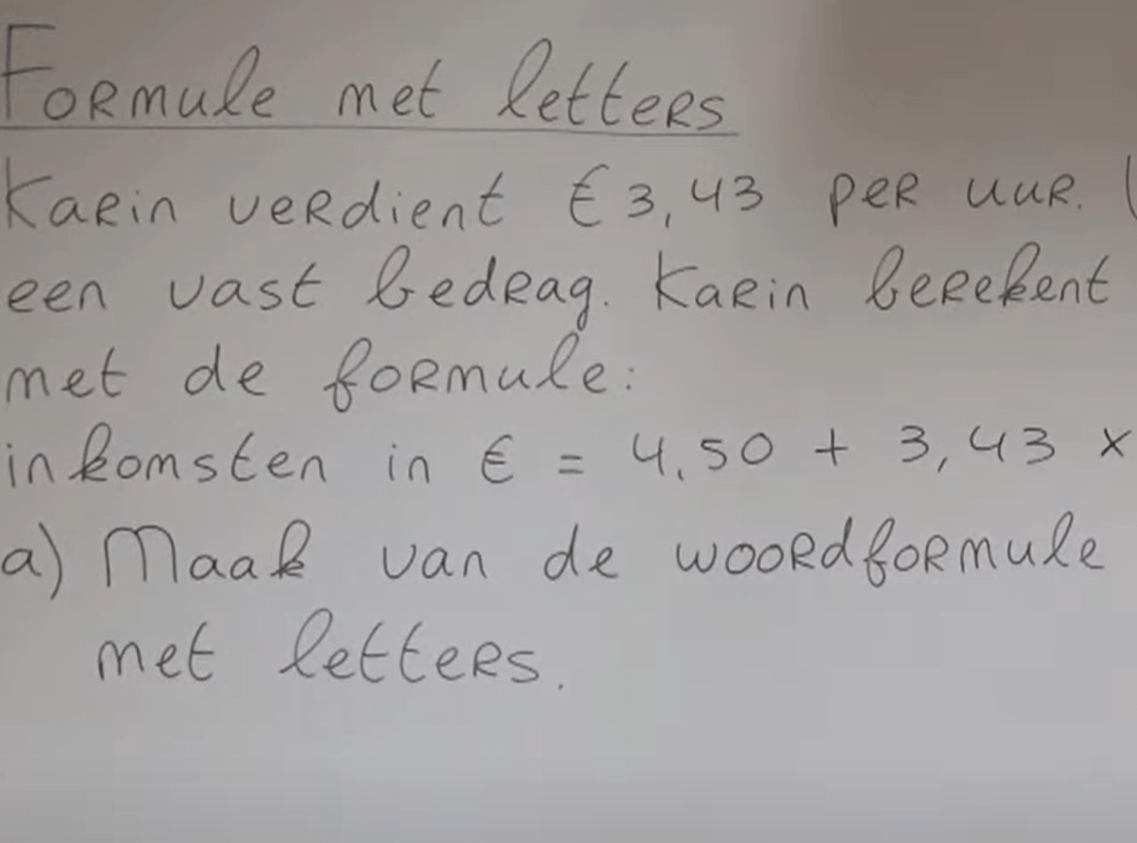 Formule met letters
Karin verdient € 3,43 per uur.
een vast bedrag. Karin berekent
met de formule:
inkomsten in € = 4,50 + 3,43 x
a) Maak van de woordformule
met letters.